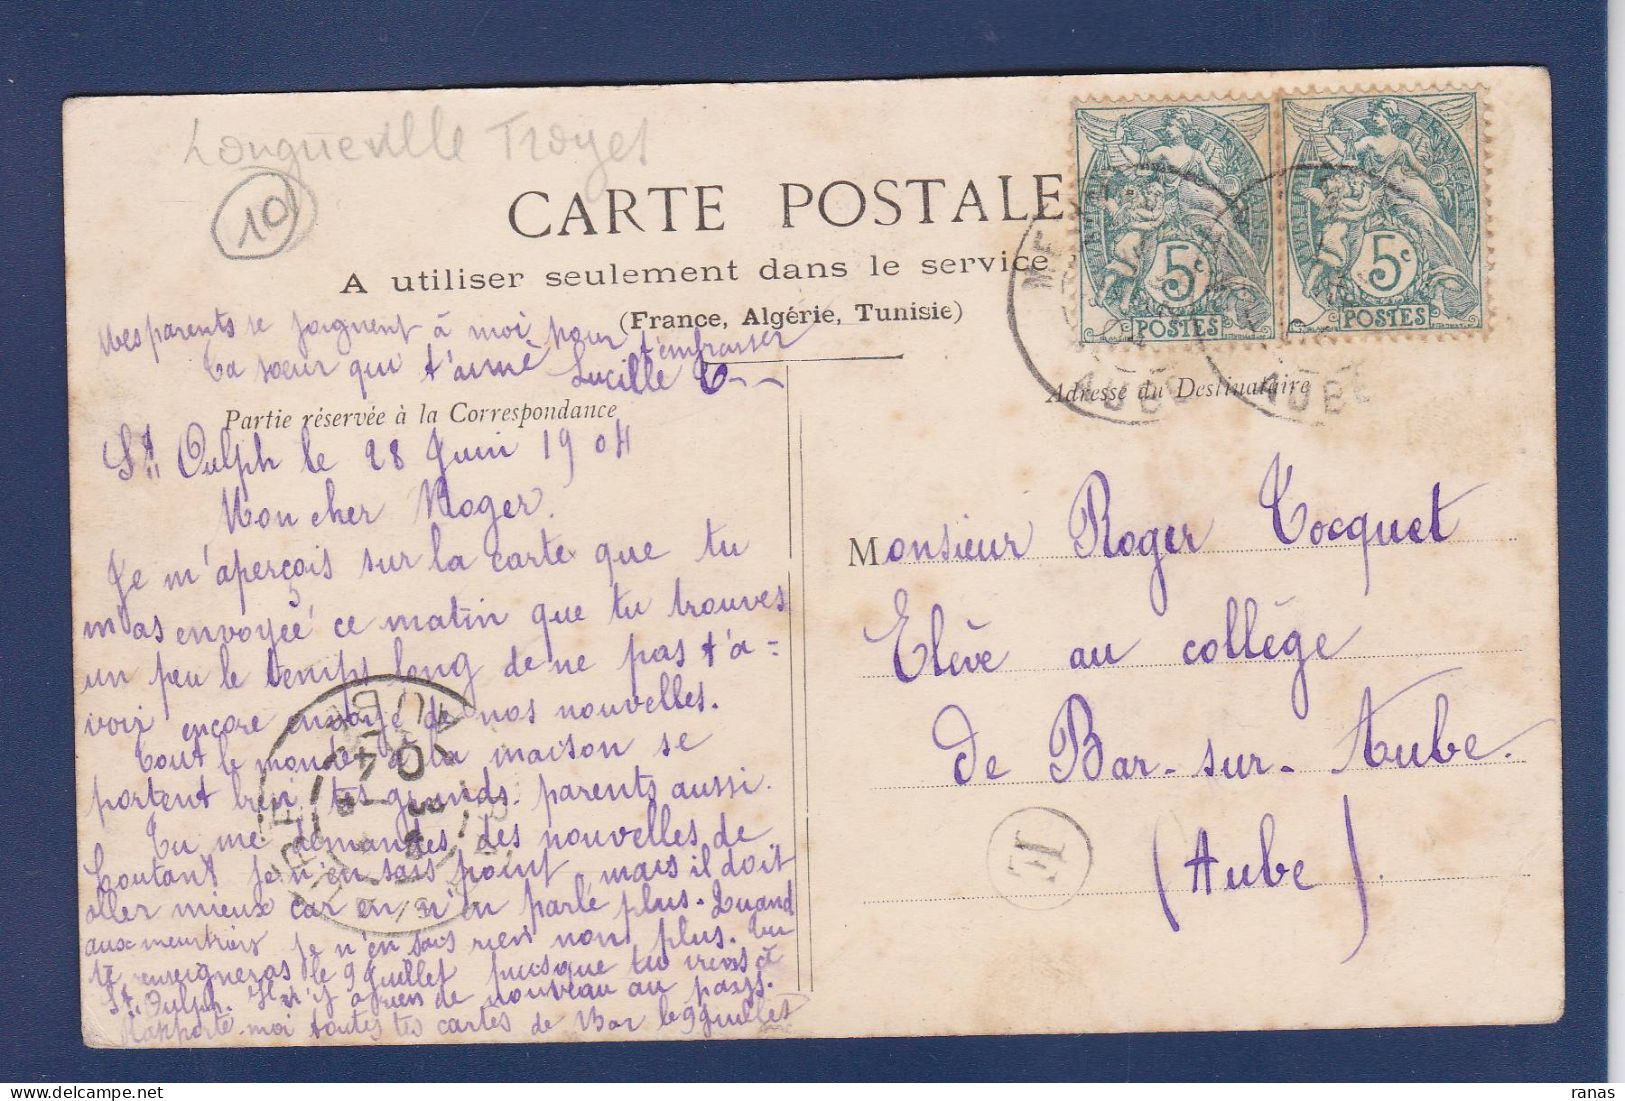 Longueville Troyes
10
CARTE POSTALE
A utiliser seulement dans le service
(France, Algérie, Tunisie)
FRANÇAISE
5c
POSTES
5c
POSTES
AUBE
AUBE
Mes parents se joignent à moi pour t'embrasser
Ta sœur qui t'aime Lucille C--
Partie réservée à la Correspondance
Adresse du Destinataire
St Oulph le 28 Juin 1904
Mon cher Roger.
Je m'aperçois sur la carte que tu
m'as envoyée ce matin que tu trouves
un peu le temps long de ne pas t'a=
voir encore envoyé de nos nouvelles.
Tout le monde à la maison se
portent bien, tes grands-parents aussi.
Tu me demandes des nouvelles de
Coutant je n'en sais point, mais il doit
aller mieux car on n'en parle plus. Quand
aux meurtriers je n'en sais rien non plus. Tu
te renseigneras le 9 Juillet puisque tu viens à
St Oulph. Il n'y a rien de nouveau au pays.
Rapporte-moi toutes tes cartes de Bar le 9 Juillet
Monsieur Roger Cocquet
Elève au collège
de Bar-sur-Aube.
(Aube).
AUBE
04
H
ranas